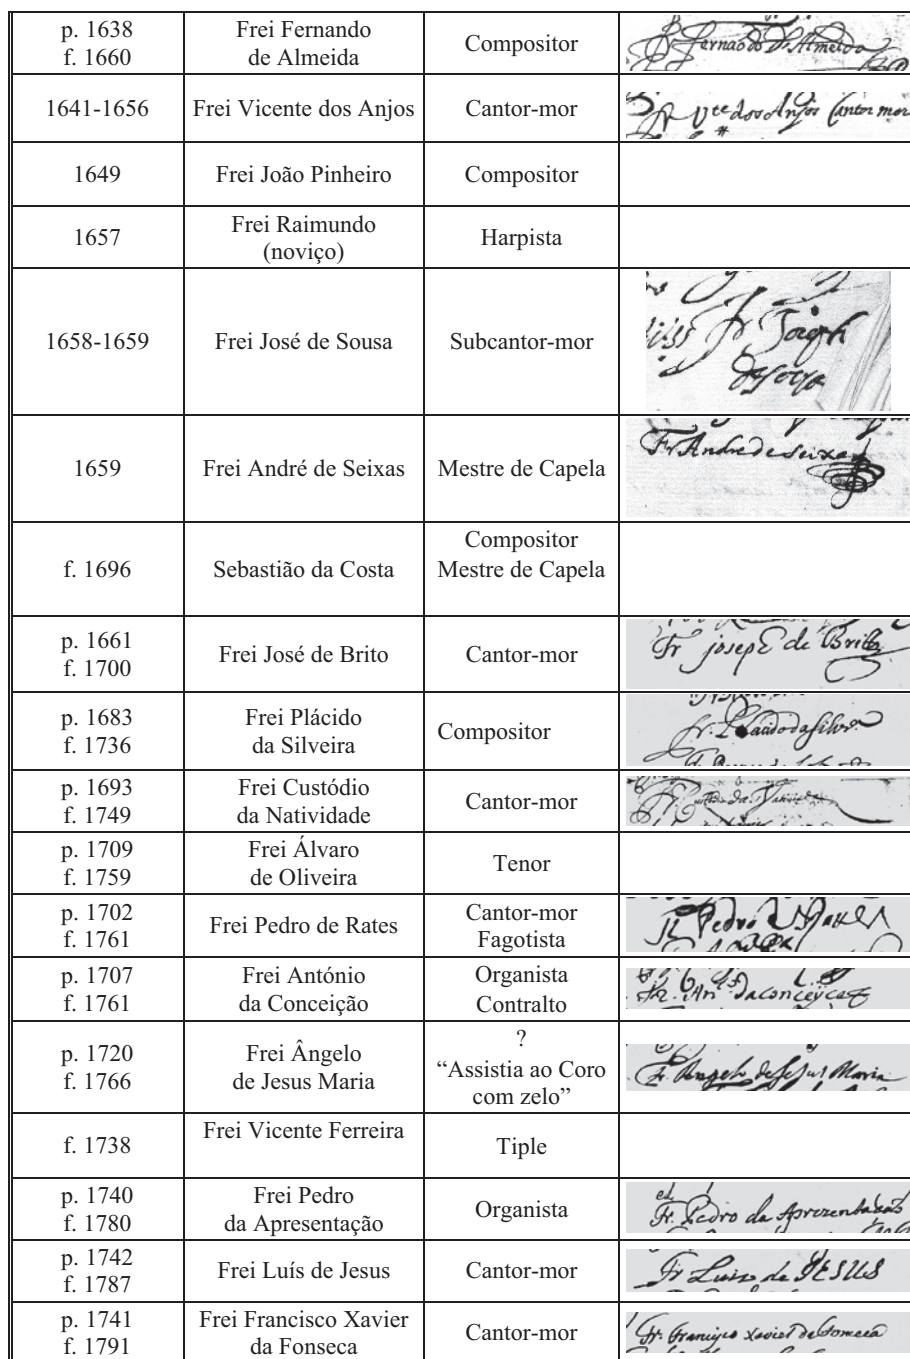 p. 1638
f. 1660
Frei Fernando
de Almeida
Compositor
Fr Fernando d Almeida
1641-1656
Frei Vicente dos Anjos
Cantor-mor
Fr Vte dos Anjos Cantor mor
1649
Frei João Pinheiro
Compositor
1657
Frei Raimundo
(noviço)
Harpista
1658-1659
Frei José de Sousa
Subcantor-mor
Fr Joseph
1659
Frei André de Seixas
Mestre de Capela
Fr Andre de seixas
f. 1696
Sebastião da Costa
Compositor
Mestre de Capela
p. 1661
f. 1700
Frei José de Brito
Cantor-mor
Fr joseph de Britto
p. 1683
f. 1736
Frei Plácido
da Silveira
Compositor
p. 1693
f. 1749
Frei Custódio
da Natividade
Cantor-mor
p. 1709
f. 1759
Frei Álvaro
de Oliveira
Tenor
p. 1702
f. 1761
Frei Pedro de Rates
Cantor-mor
Fagotista
Fr Pedro
p. 1707
f. 1761
Frei António
da Conceição
Organista
Contralto
p. 1720
f. 1766
Frei Ângelo
de Jesus Maria
?
“Assistia ao Coro
com zelo”
Fr Angelo de Jesus Maria
f. 1738
Frei Vicente Ferreira
Tiple
p. 1740
f. 1780
Frei Pedro
da Apresentação
Organista
Fr. Pedro da
p. 1742
f. 1787
Frei Luís de Jesus
Cantor-mor
Fr Luis de JESUS
p. 1741
f. 1791
Frei Francisco Xavier
da Fonseca
Cantor-mor